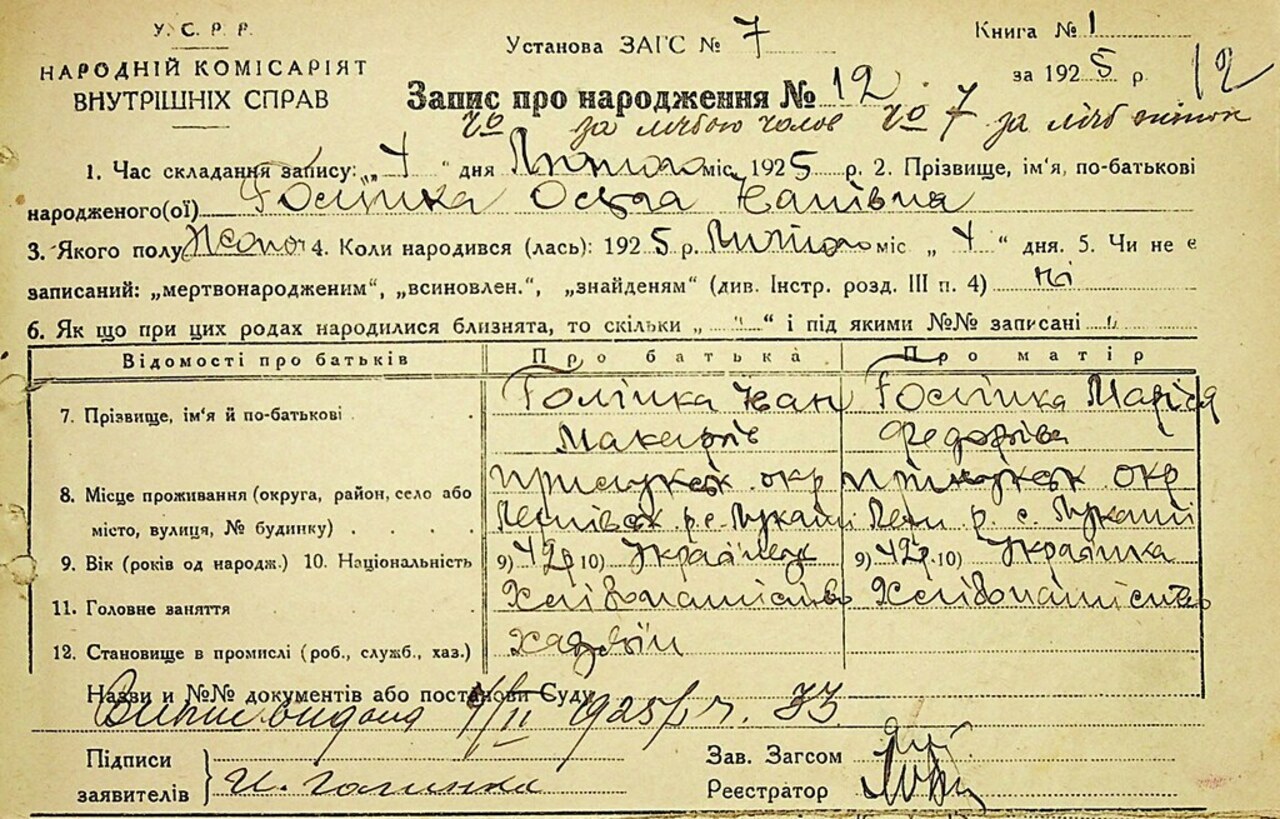 У. С. Р. Р.
НАРОДНІЙ КОМІСАРІЯТ
ВНУТРІШНІХ СПРАВ
Установа ЗАГС № 7
Книга № 1
за 1925 р. 12
Запис про народження № 12
за лічбою чолов № 7 за лічб жінок
1. Час складання запису: „4“ дня Лютого міс. 1925 р. 2. Прізвище, ім'я, по-батькові
народженого(ої) Голінка Ольга Іванівна
3. Якого полу Жіноч 4. Коли народився (лась): 1925 р. Лютого міс „4“ дня. 5. Чи не є
записаний: „мертвонародженим“, „всиновлен.“, „знайденям“ (див. Інстр. розд. III п. 4) ні
6. Як що при цих родах народилися близнята, то скільки „ “ і під якими №№ записані
Відомості про батьків Про батька Про матір
7. Прізвище, ім'я й по-батькові Голінка Іван Голінка Марія
Макарів Федорівна
8. Місце проживання (округа, район, село або Прилуцьк окр Прилуцьк окр
місто, вулиця, № будинку) р. с. р. с.
9. Вік (років од народж.) 10. Національність 9) 42р 10) Українец 9) 42р. 10) Українка
11. Головне заняття Хлібопашіство Хлібопашіство
12. Становище в промислі (роб., служб., хаз.) Хазяїн
Назви и №№ документів або постанови Суду
Випис видана 4/II 1925 р. 33
Підписи
заявителів И. Галинка
Зав. Загсом
Реєстратор